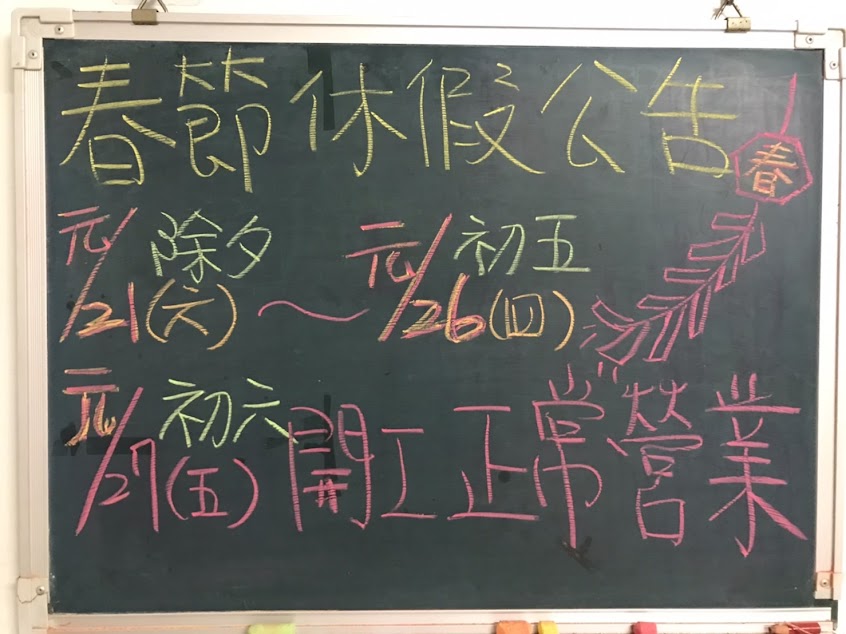 春節休假公告
春
元/21(六)除夕～元/26(四)初五
元/27(五)初六開工正常營業